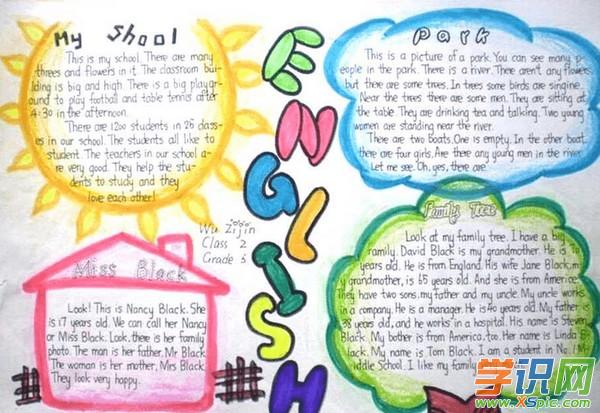 My Shool
This is my school. There are many
threes and flowers in it. The classroom bui-
lding is big and high. There is a big playgr-
ound to play football and table tennis after
4:30 in the afternoon.
There are 1200 students in 25 class-
es in our school. The students all like to
student. The teachers in our school a-
re very good. They help the stu-
dents to study and they
love each other!
ENGLISH
Park
This is a picture of a park. You can see many p-
eople in the park. There is a river. There aren't any flowers
but there are some trees. In trees some birds are singing.
Near the trees there are some men. They are sitting at
the table They are drinking tea and talking. Two young
women are standing near the river.
There are two boats. One is empty. In the other boat
there are four girls. Are there any young men in the river.
Let me see. Oh, yes, there are
Wu Zijin
Class 2
Grade 3
Miss Black
Look! This is Nancy Black. She
is 17 years old. We can call her Nancy
or Miss Black. Look, there is her family
photo. The man is her father, Mr Black.
The woman is her mother, Mrs Black.
They look very happy.
Family Tree
Look at my family tree. I have a big
family. David Black is my grandmother. He is
years old. He is from England. His wife Jane Black, m-
y grandmother, is 65 years old. And she is from America.
They have two sons, my father and my uncle. My uncle works
in a company. He is a manager. He is 40 years old. My father is
38 years old, and he works in a hospital. His name is Steven
Black. My bother is from America, too. Her name is Linda B-
lack. My name is Tom Black. I am a student in No. 1 M-
iddle School. I like my family
学识网
www.XSpic.com